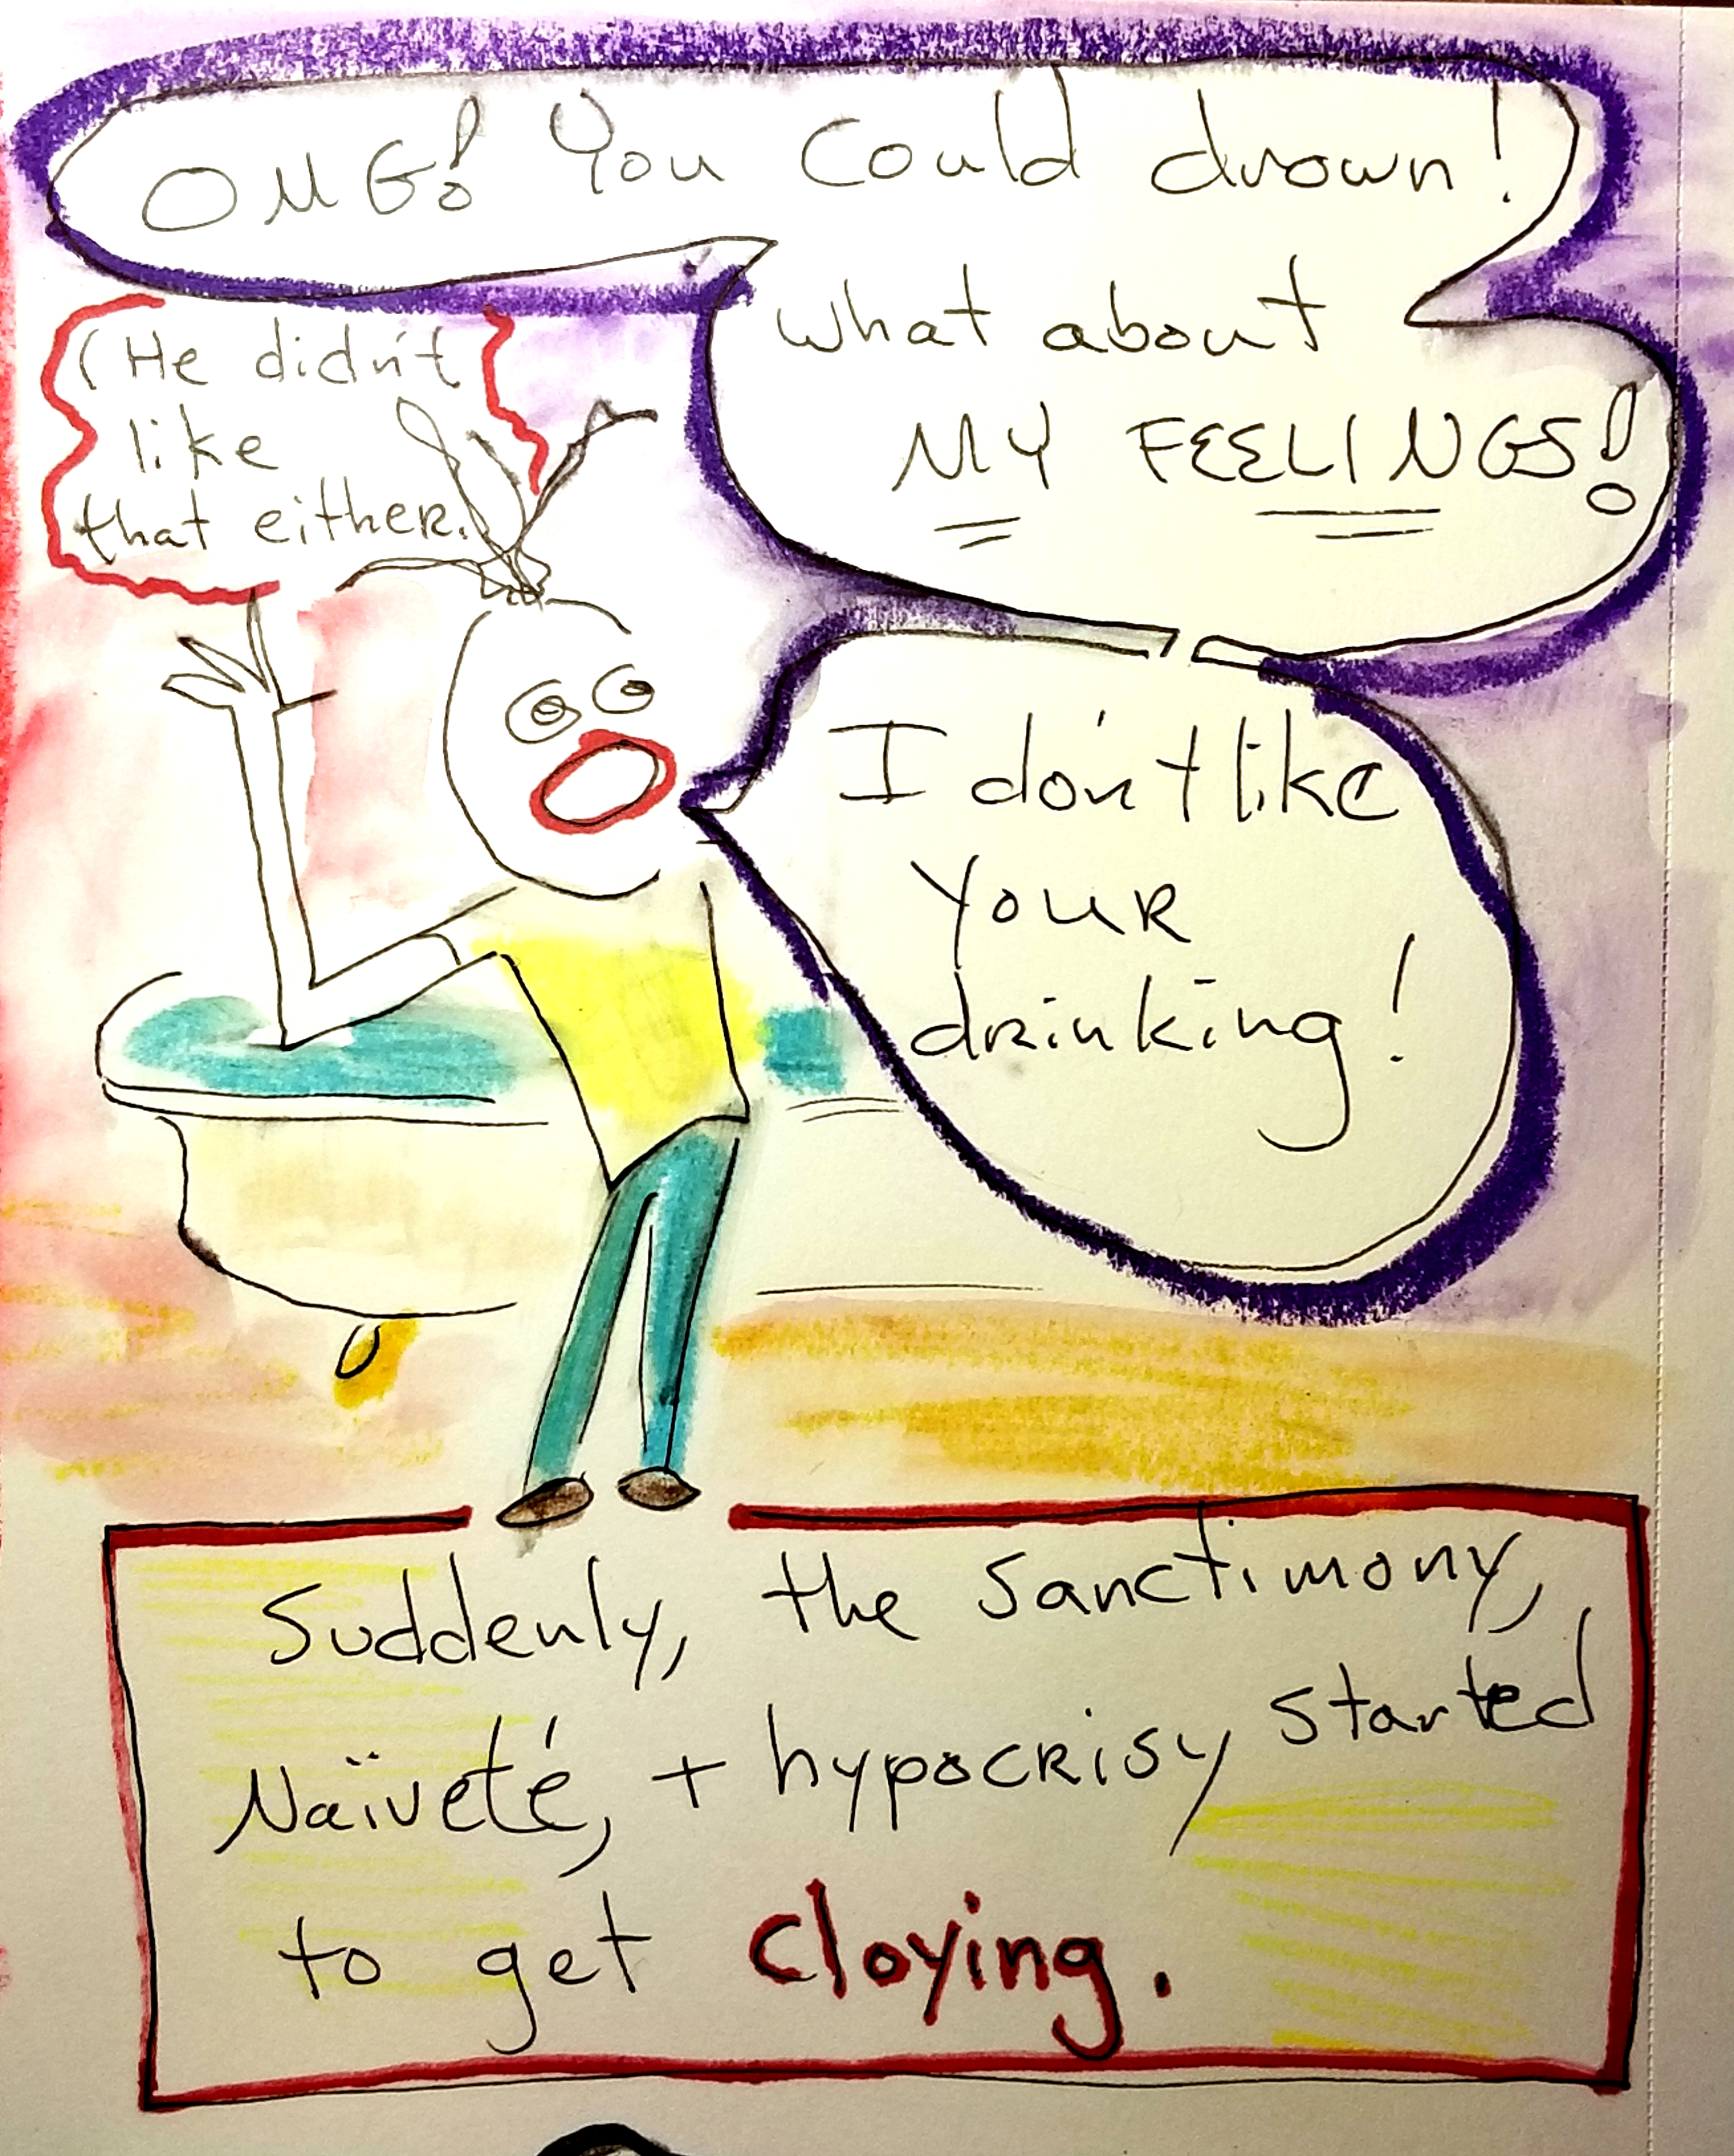 OMG! You could drown!
what about
MY FEELINGS!
(He didn't
like
that either.
I don't like
your
drinking!
Suddenly, the sanctimony,
Naïveté, + hypocrisy started
to get cloying.